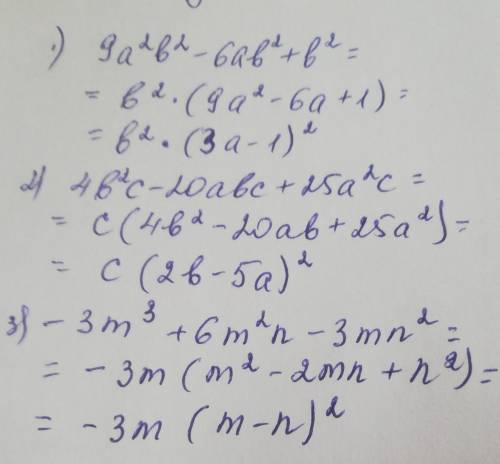 1) 9a²b² - 6ab² + b² =
= b² · (9a² - 6a + 1) =
= b² · (3a - 1)²
2) 4b²c - 20abc + 25a²c =
= c (4b² - 20ab + 25a²) =
= c (2b - 5a)²
3) - 3m³ + 6m²n - 3mn² =
= - 3m (m² - 2mn + n²) =
= - 3m (m - n)²